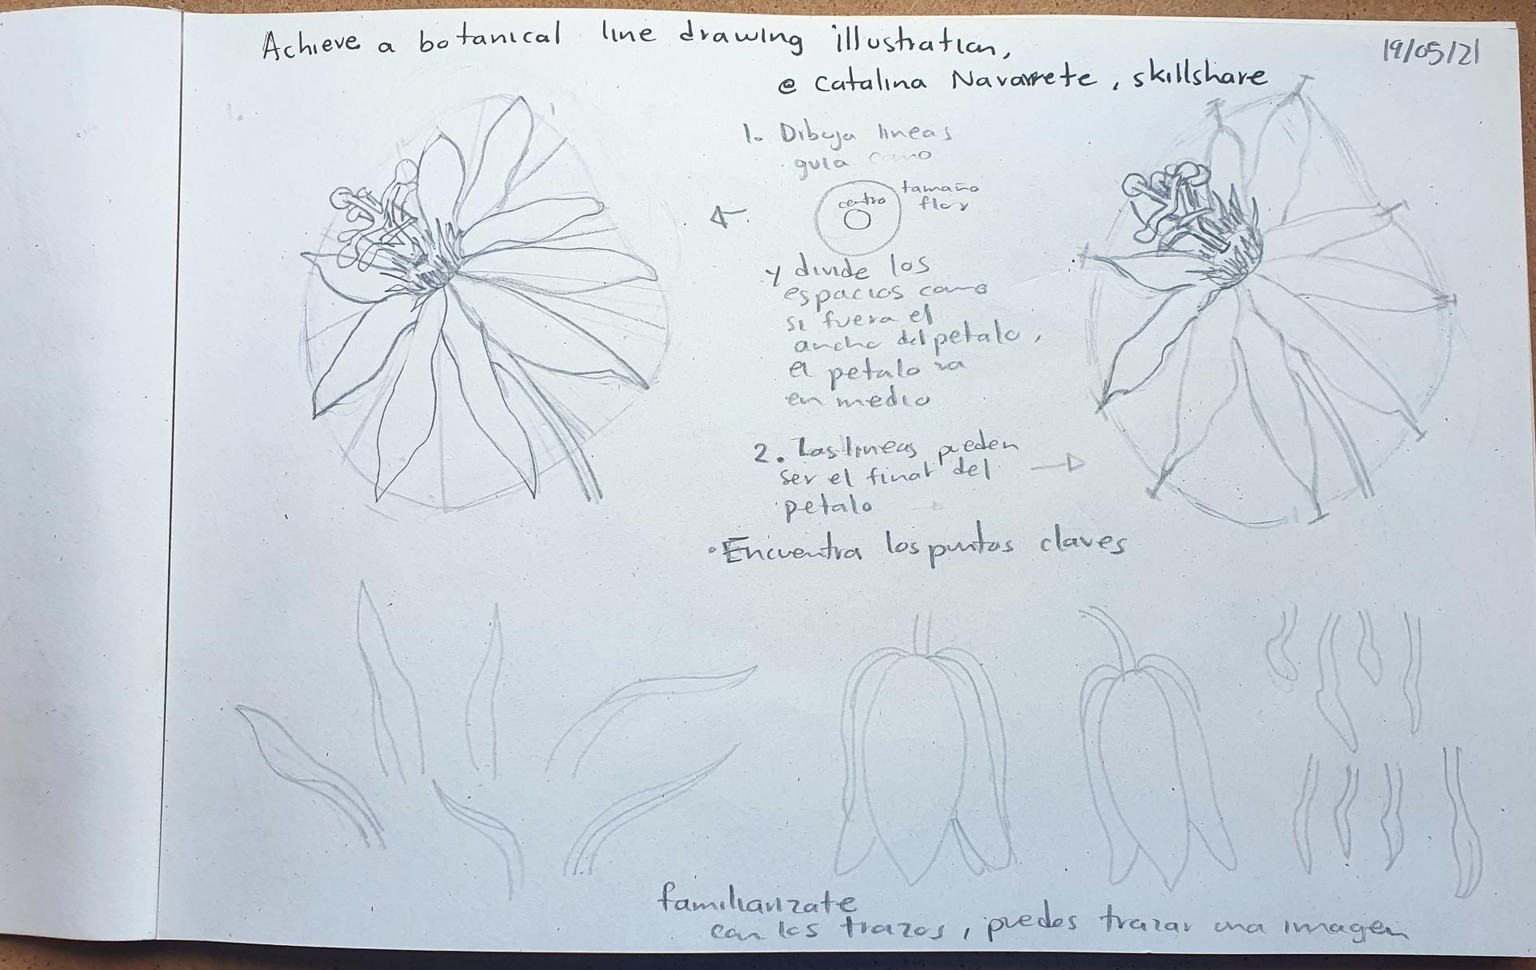 Achieve a botanical line drawing illustration,
@ Catalina Navarrete, skillshare
19/05/21
1. Dibuja lineas
guia como
centro
tamaño
flor
y divide los
espacios como
si fuera el
ancho del petalo,
el petalo va
en medio
2. Las lineas pueden
ser el final del
petalo
• Encuentra los puntos claves
familiarizate
con los trazos, puedes trazar una imagen